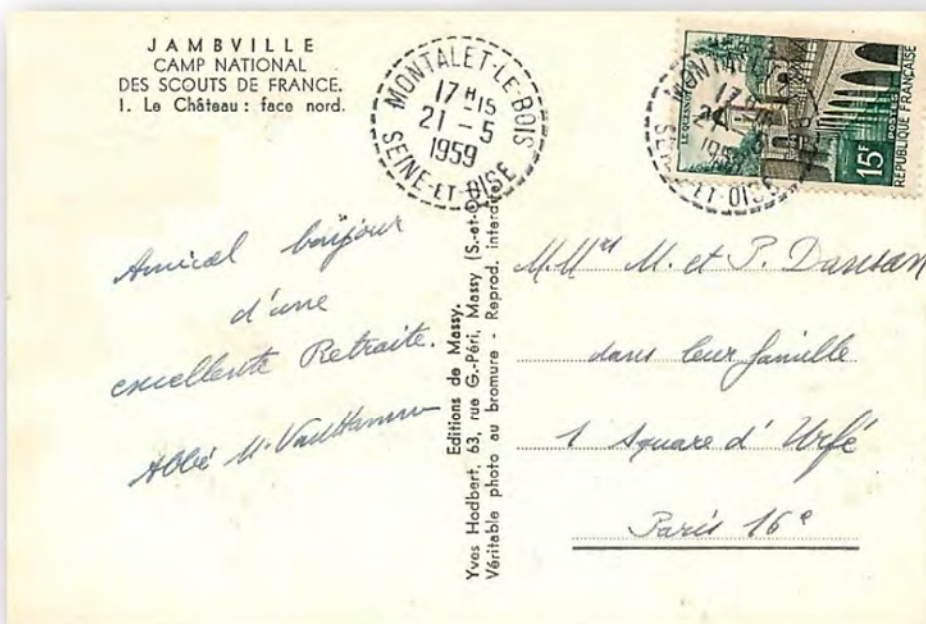 JAMBVILLE
CAMP NATIONAL
DES SCOUTS DE FRANCE.
1. Le Château : face nord.
MONTALET-LE-BOIS
17 H 15
21 - 5
1959
SEINE-ET-OISE
MONTALET
17 H
21 5
195
SEINE-ET-OISE
LE QUESNOY
15F
POSTES
REPUBLIQUE FRANÇAISE
Amical bonjour
d'une
excellente Retraite.
Abbé M.
Editions de Massy.
Yves Hodbert, 63, rue G.-Péri, Massy (S.-et-O.
Véritable photo au bromure - Reprod. interdi
M. et P.
dans leur famille
1 Square d'Urfé
Paris 16e